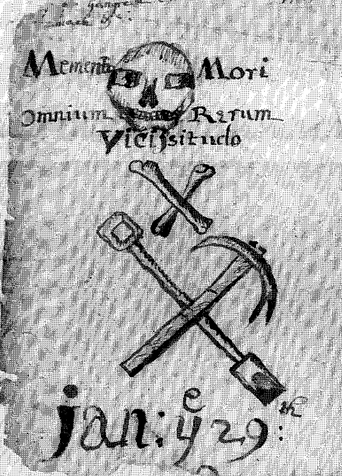 Memento Mori
Omnium Rerum
Vicissitudo
jan: yᵉ 29th: